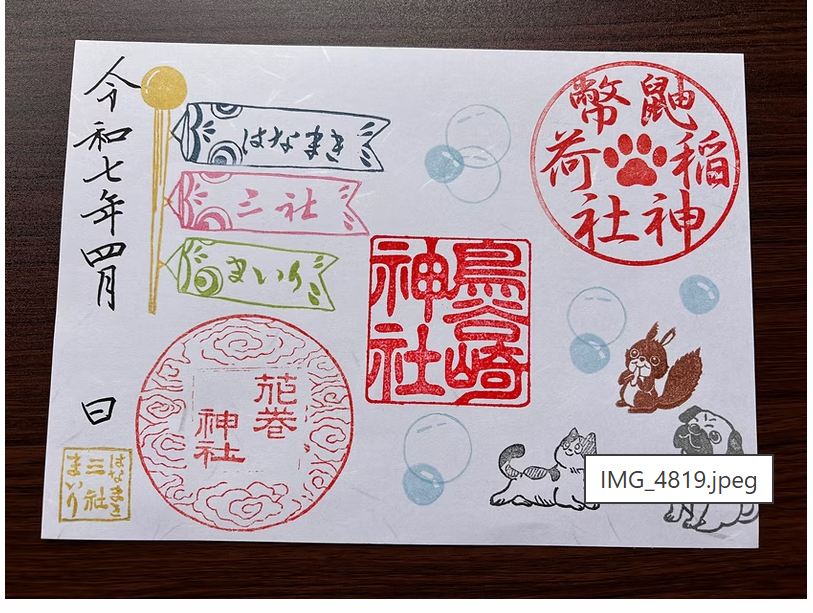 鼬幣
稲荷
神社
鳥谷崎
神社
はなまき
三社
まいり
花巻
神社
令和七年四月 日
はなまき
三社
まいり
IMG_4819.jpeg